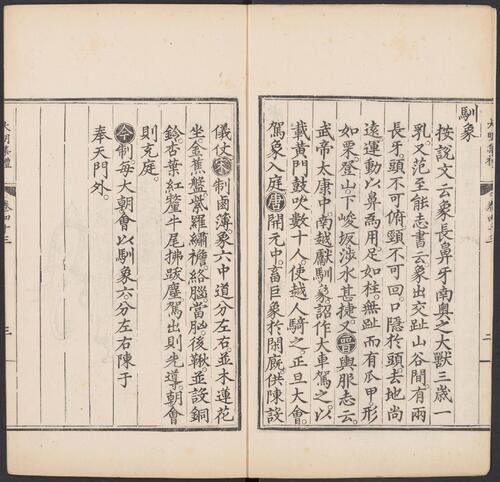 大明集禮
卷四十三
二
馴象
按說文云象長鼻牙南奧之大獸三歲一
乳又范至能志書云象出交趾山谷間有兩
長牙頭不可俯頸不可回口隱於頭去地尚
遠運動以鼻為用足如柱無趾而有瓜甲形
如栗登山下峻坂涉水甚捷又晉輿服志云
武帝太康中南越獻馴象詔作大車駕之以
載黃門鼓吹數十人使越人騎之正旦大會
駕象入庭唐開元中畜巨象於閑廐供陳設
儀仗宋制鹵簿象六中道分左右並木蓮花
坐金蕉盤紫羅繡襜絡腦當胷後鞦並設銅
鈴杏葉紅氂牛尾拂跋塵駕出則先導朝會
則充庭
今制每大朝會以馴象六分左右陳于
奉天門外
大明集禮
卷四十三
三